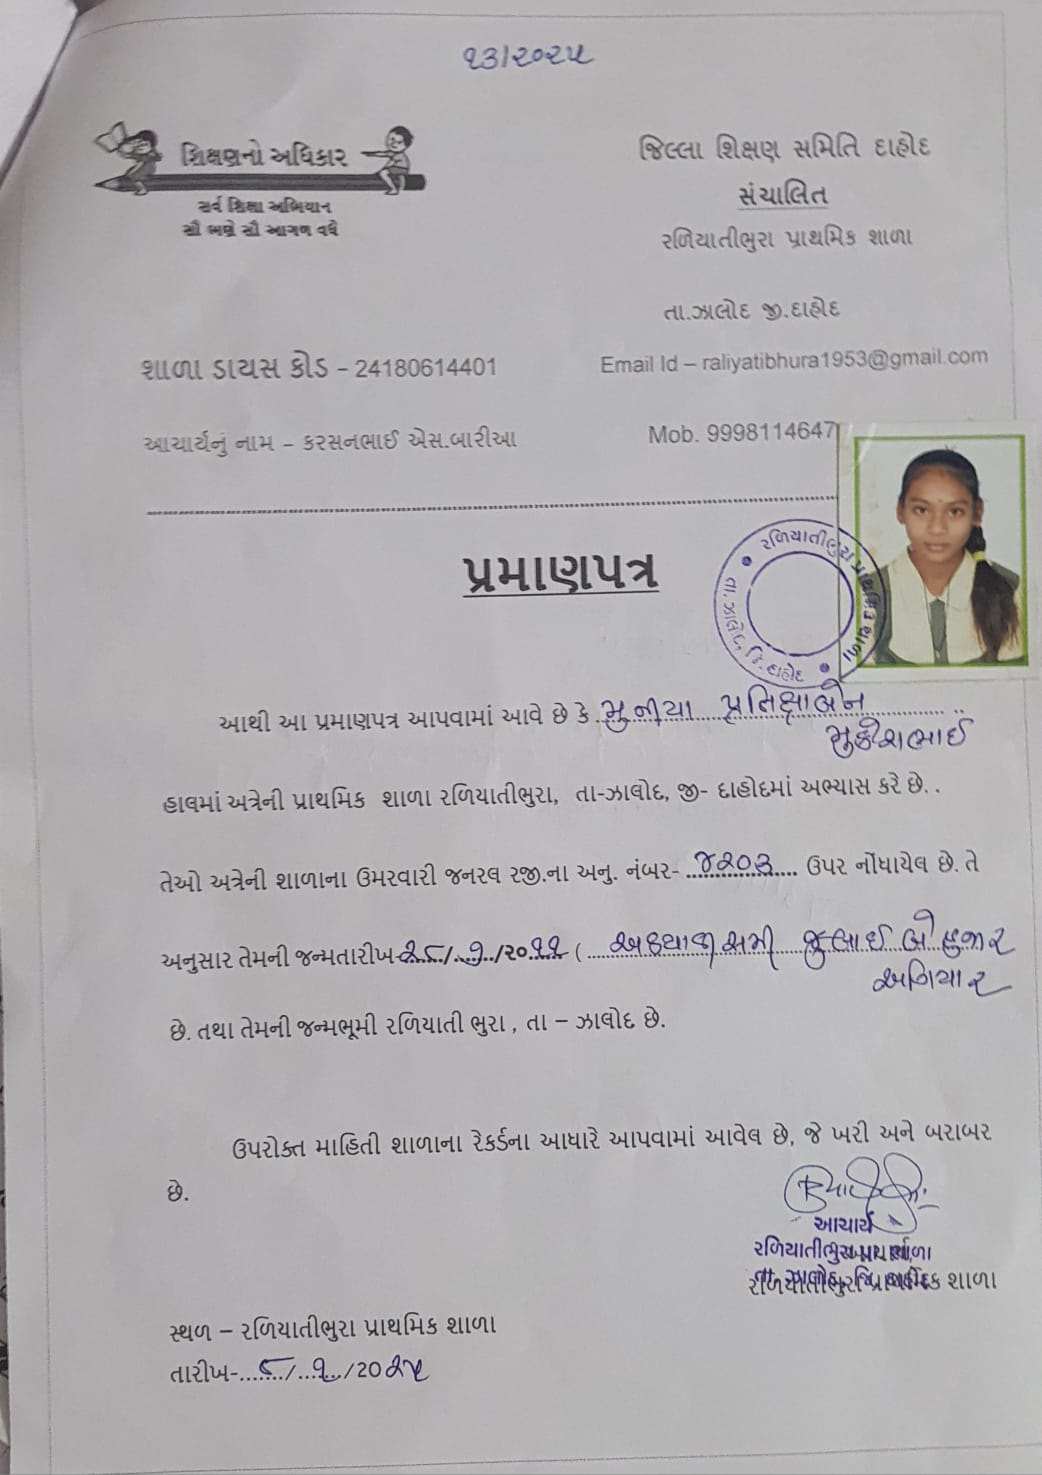 ૧૩/૨૦૨૫
શિક્ષણનો અધિકાર
સર્વ શિક્ષા અભિયાન
સૌ ભણે સૌ આગળ વધે
જિલ્લા શિક્ષણ સમિતિ દાહોદ
સંચાલિત
રળિયાતીભુરા પ્રાથમિક શાળા
તા.ઝાલોદ જી.દાહોદ
શાળા ડાયસ કોડ – 24180614401
Email Id – raliyatibhura1953@gmail.com
આચાર્યનું નામ – કરસનભાઈ એસ.બારીઆ
Mob. 9998114647
પ્રમાણપત્ર
રળિયાતીભુરા પ્રાથમિક શાળા
તા.ઝાલોદ, જિ.દાહોદ
આથી આ પ્રમાણપત્ર આપવામાં આવે છે કે મુનીયા પ્રતિક્ષાબેન
મુકેશભાઈ
હાલમાં અત્રેની પ્રાથમિક શાળા રળિયાતીભુરા, તા-ઝાલોદ, જી- દાહોદમાં અભ્યાસ કરે છે. .
તેઓ અત્રેની શાળાના ઉમરવારી જનરલ રજી.ના અનુ. નંબર- ૪૨૦૩ ઉપર નોંધાયેલ છે. તે
અનુસાર તેમની જન્મતારીખ-૨૮/૭/૨૦૧૧ ( અઠ્યાવીસમી જુલાઈ બે હજાર
અગિયાર
છે. તથા તેમની જન્મભૂમી રળિયાતી ભુરા , તા – ઝાલોદ છે.
ઉપરોક્ત માહિતી શાળાના રેકર્ડના આધારે આપવામાં આવેલ છે, જે ખરી અને બરાબર
છે.
આચાર્ય
રળિયાતીભુરા શાળા
રળિયાતીભુરા પ્રાથમિક શાળા
સ્થળ – રળિયાતીભુરા પ્રાથમિક શાળા
તારીખ- ૮/૭/૨૦૨૫